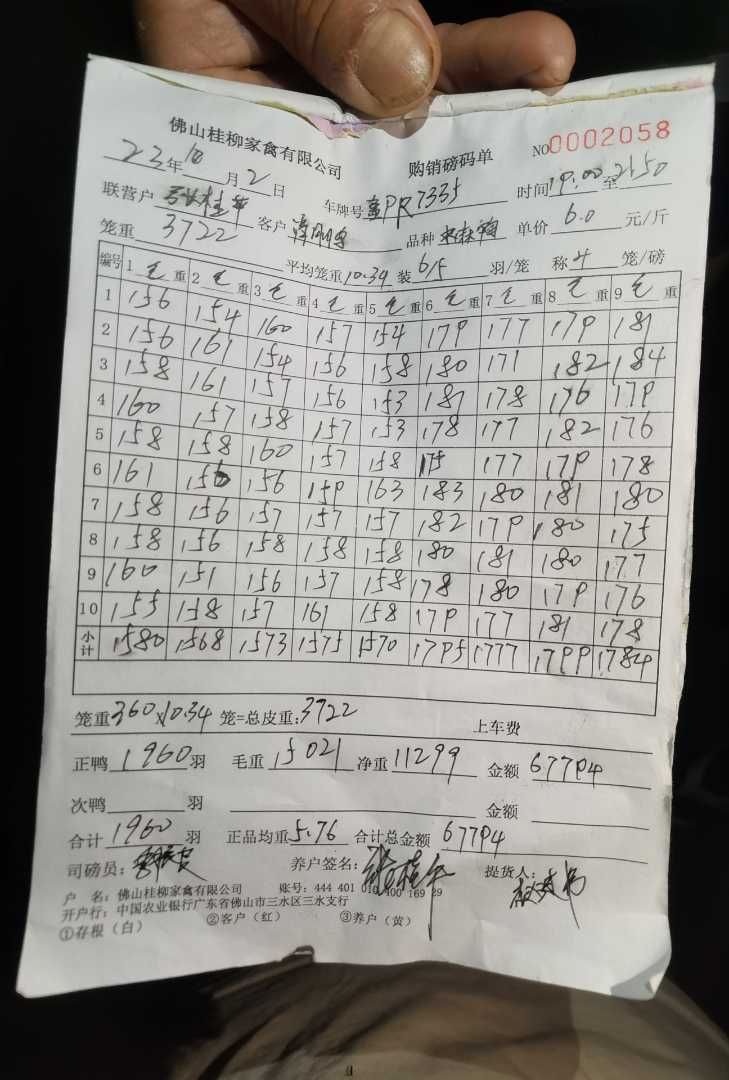 佛山桂柳家禽有限公司 购销磅码单 NO0002058
23年10月2日
联营户 桂 车牌号 PR7335 时间19:00至2150
笼重3722 客户 品种 单价6.0元/斤
平均笼重10.34装6/5羽/笼 称4笼/磅
编号 1毛重 2毛重 3毛重 4毛重 5毛重 6毛重 7毛重 8毛重 9毛重
1 156 154 160 157 154 179 177 179 181
2 156 161 154 156 158 180 171 182 184
3 158 161 157 156 153 181 178 176 179
4 160 157 158 157 153 178 177 182 176
5 158 158 160 157 158 175 177 179 178
6 161 156 156 159 163 183 180 181 180
7 158 156 157 157 157 182 179 180 175
8 158 156 158 158 158 180 181 180 177
9 160 151 156 157 158 178 180 179 176
10 155 158 157 161 158 179 177 181 178
小计 1580 1568 1573 1575 1570 1795 1777 1799 1784
笼重360×10.34笼=总皮重:3722 上车费
正鸭1960羽 毛重15021净重11299 金额67794
次鸭 羽 金额
合计1960羽 正品均重5.76合计总金额67794
司磅员: 养户签名: 提货人:
户 名:佛山桂柳家禽有限公司 账号:444 401 010 400 169 29
开户行:中国农业银行广东省佛山市三水区三水支行
①存根(白) ②客户(红) ③养户(黄)